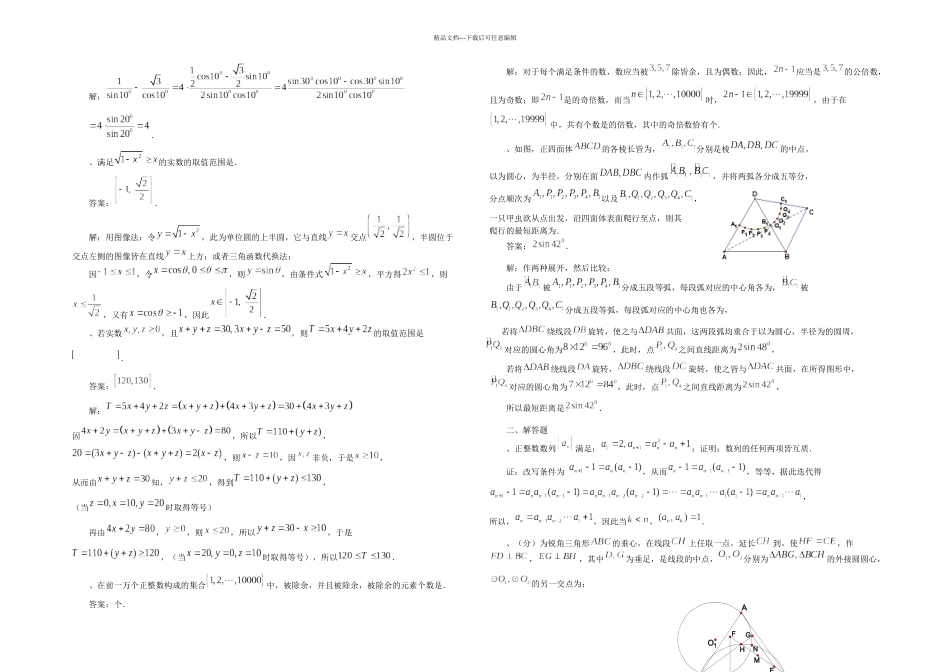 精品文档---下载后可任意编辑
解：1/sin10⁰ - √3/cos10⁰ = 4·(1/2 cos10⁰ - √3/2 sin10⁰)/(2sin10⁰cos10⁰) = 4 (sin30⁰cos10⁰ - cos30⁰sin10⁰)/(2sin10⁰cos10⁰)
=4 sin20⁰/sin20⁰ =4．
、满足√1-x² x的实数的取值范围是．
答案：[-1, √2/2]．
解：用图像法：令y=√1-x²，此为单位圆的上半圆，它与直线y x交点(1/√2, 1/√2)，半圆位于
交点左侧的图像皆在直线y x上方；或者三角函数代换法：
因-1 x 1，令x=cosθ,0 θ π，则y=sinθ，由条件式√1-x² x，平方得2x² 1，则
x 1/√2，又有x=cosθ -1，因此x∈[-1, √2/2]．
、若实数x,y,z 0，且x+y+z=30,3x+y-z=50，则T=5x+4y+2z的取值范围是
[ ]．
答案：[120,130]．
解：T=5x+4y+2z=(x+y+z)+(4x+3y+z)=30+(4x+3y+z)
因4x+2y=(x+y+z)+(3x+y-z)=80，所以T=110+(y+z)，
20=(3x+y-z)-(x+y+z)=2(x-z)，则x-z=10，因x,z非负，于是x 10，
从而由x+y+z=30知，y+z 20，得到T=110+(y+z) 130，
(当z=0,x=10,y=20时取得等号)
再由4x+2y=80，y 0，则x 20，所以y+z=30-x 10，于是
T=110+(y+z) 120，（当x=20,y=0,z=10时取得等号），所以120 T 130．
、在前一万个正整数构成的集合{1,2,⋯,10000}中，被除余，并且被除余，被除余的元素个数是．
答案：个．
解：对于每个满足条件的数，数应当被3,5,7除皆余，且为偶数；因此，2n-1应当是3,5,7的公倍数，
且为奇数；即2n-1是的奇倍数，而当n∈{1,2,⋯,10000}时，2n-1∈{1,2,⋯,19999}，由于在
{1,2,⋯,19999}中，共有个数是的倍数，其中的奇倍数恰有个．
、如图，正四面体ABCD的各棱长皆为，A₁,B₁,C₁分别是棱DA,DB,DC的中点，
以为圆心，为半径，分别在面DAB,DBC内作弧A₁B₁,B₁C₁，并将两弧各分成五等分，
分点顺次为A₁,P₁,P₂,P₃,P₄,B₁以及B₁,Q₁,Q₂,Q₃,Q₄,C₁，
一只甲虫欲从点出发，沿四面体表面爬行至点，则其
爬行的最短距离为．
答案：2sin42⁰．
解：作两种展开，然后比较；
由于A₁B₁被A₁,P₁,P₂,P₃,P₄,B₁分成五段等弧，每段弧对应的中心角各为，B₁C₁被
B₁,Q₁,Q₂,Q₃,Q₄,C₁分成五段等弧，每段弧对应的中心角也各为，
若将ΔDBC绕线段DB旋转，使之与ΔDAB共面，这两段弧均重合于以为圆心，半径为的圆周，
P₁Q₄对应的圆心角为8×12=96⁰，此时，点P₁,Q₄之间直线距离为2sin48⁰，
若将ΔDAB绕线段DA旋转，ΔDBC绕线段DC旋转，使之皆与ΔDAC共面，在所得图形中，
P₁Q₄对应的圆心角为7×12=84⁰，此时，点P₁,Q₄之间直线距离为2sin42⁰，
所以最短距离是2sin42⁰．
二、解答题
、正整数数列{aₙ}满足：a₁=2,aₙ₊₁=aₙ²-aₙ+1；证明：数列的任何两项皆互质．
证：改写条件为 aₙ₊₁-1=aₙ(aₙ-1)，从而aₙ-1=aₙ₋₁(aₙ₋₁-1)，等等，据此迭代得
aₙ₊₁-1=aₙaₙ₋₁(aₙ₋₁-1)=aₙaₙ₋₁aₙ₋₂(aₙ₋₂-1)=⋯=aₙaₙ₋₁⋯a₁(a₁-1)=aₙaₙ₋₁⋯a₁，
所以，aₙ=aₙ₋₁aₙ₋₂⋯a₁+1，因此当k<n，(aₙ,aₖ)=1．
、（分）为锐角三角形ABC的垂心，在线段CH上任取一点，延长CH到，使HF=CE，作
FD⊥BC，EG⊥BH，其中D,G为垂足，是线段的中点，O₁,O₂分别为ΔABG,ΔBCH的外接圆圆心，
⊙O₁,⊙O₂的另一交点为；